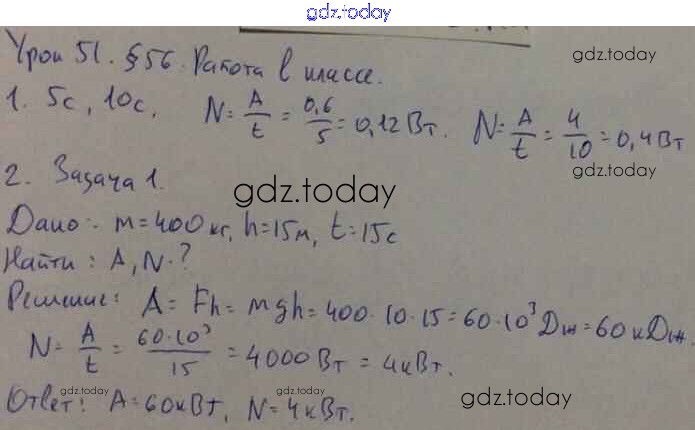 gdz.today
Урок 51. §56. Работа в классе.
gdz.today
1. 5с, 10с. N = A/t = 0,6/5 = 0,12 Вт. N = A/t = 4/10 = 0,4 Вт
gdz.today
2. Задача 1.
gdz.today
Дано: m = 400 кг, h = 15 м, t = 15 с
Найти: A, N - ?
Решение: A = Fh = mgh = 400 · 10 · 15 = 60 · 10³ Дж = 60 кДж.
N = A/t = 60·10³/15 = 4000 Вт = 4 кВт.
gdz.today gdz.today gdz.today
Ответ: A = 60 кВт, N = 4 кВт.